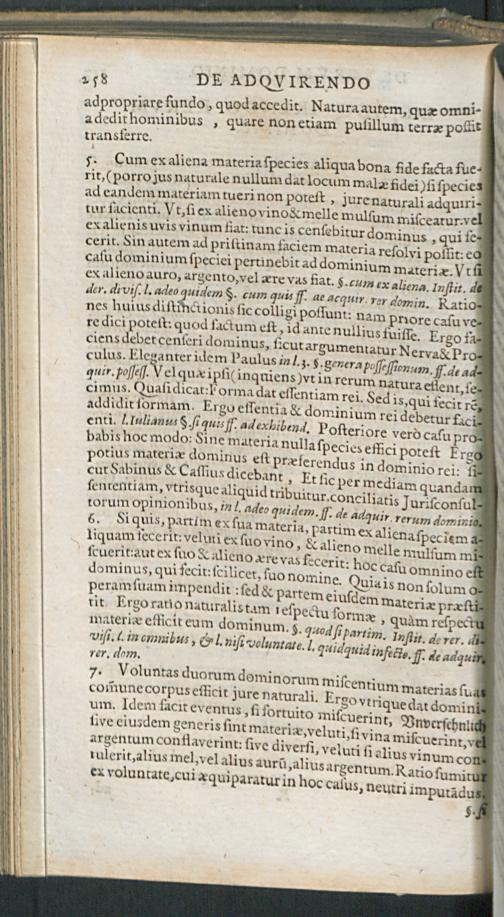 258 DE ADQVIRENDO
adpropriare fundo, quod accedit. Natura autem, quæ omni-
a dedit hominibus, quare non etiam pusillum terræ possit
transferre.
5. Cum ex aliena materia species aliqua bona fide facta fue-
rit, (porro jus naturale nullum dat locum malæ fidei) si species
ad eandem materiam tueri non potest, jure naturali adquiri-
tur facienti. Vt, si ex alieno vino & melle mulsum misceatur. vel
ex alienis uvis vinum fiat: tunc is censebitur dominus, qui fe-
cerit. Sin autem ad pristinam faciem materia resolvi possit: eo
casu dominium speciei pertinebit ad dominium materiæ. Vt si
ex alieno auro, argento, vel ære vas fiat. §. cum ex aliena. Instit. de
der. divis. l. adeo quidem §. cum quis ff. ae acquir. rer domin. Ratio-
nes huius distinctionis sic colligi possunt: nam priore casu ve-
re dici potest: quod factum est, id ante nullius fuisse. Ergo fa-
ciens debet censeri dominus, sicut argumentatur Nerva & Pro-
culus. Eleganter idem Paulus in l. 3. §. genera possessionum. ff. de ad-
quir. possess. Vel quæ ipsi (inquiens) vt in rerum natura essent, fe-
cimus. Quasi dicat: Forma dat essentiam rei. Sed is, qui fecit rē,
addidit formam. Ergo essentia & dominium rei debetur faci-
enti. l. Iulianus §. si quis ff. ad exhibend. Posteriore verò casu pro-
babis hoc modo: Sine materia nulla species effici potest Ergo
potius materiæ dominus est præferendus in dominio rei: si-
cut Sabinus & Cassius dicebant, Et sic per mediam quandam
sententiam, vtrisque aliquid tribuitur. conciliatis Jurisconsul-
torum opinionibus, in l. adeo quidem. ff. de adquir. rerum dominio.
6. Si quis, partim ex sua materia, partim ex aliena speciem a-
liquam fecerit: veluti ex suo vino, & alieno melle mulsum mi-
scuerit: aut ex suo & alieno ære vas fecerit: hoc casu omnino est
dominus, qui fecit: scilicet, suo nomine. Quia is non solum o-
peram suam impendit: sed & partem eiusdem materiæ præsti-
tit Ergo ratio naturalis tam respectu formæ, quàm respectu
materiæ efficit eum dominum. §. quod si partim. Instit. de rer. di-
visi. l. in omnibus, & l. nisi voluntate. l. quidquid infecto. ff. de adquir.
rer. dom.
7. Voluntas duorum dominorum miscentium materias suas
comūne corpus efficit jure naturali. Ergo vtrique dat domini-
um. Idem facit eventus, si fortuito miscuerint, Vnversehnlich
sive eiusdem generis sint materiæ, veluti, si vina miscuerint, vel
argentum conflaverint: sive diversi, veluti si alius vinum con-
tulerit, alius mel, vel alius aurū, alius argentum. Ratio sumitur
ex voluntate, cui æquiparatur in hoc casus, neutri imputādus.
§. si